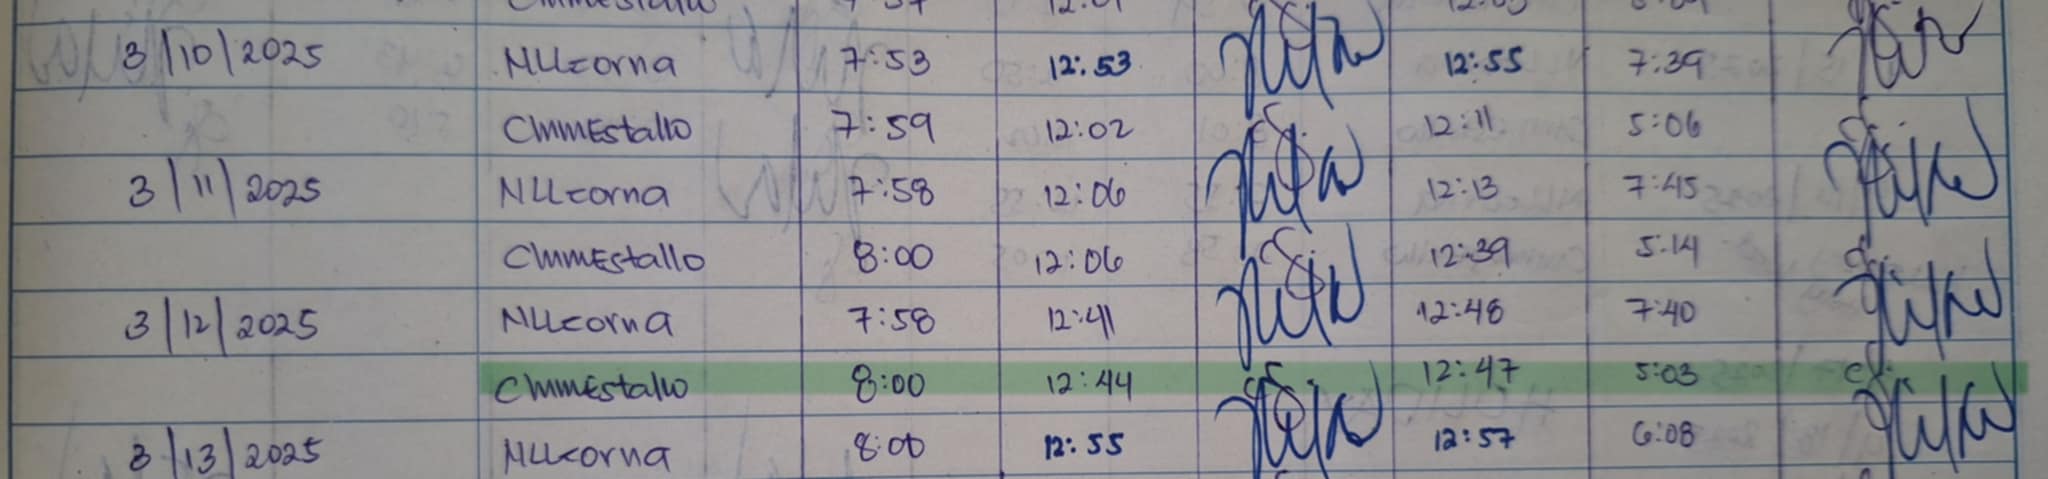 3/10/2025 NLLcorna 7:53 12:53 12:55 7:39
CMMEstallo 7:59 12:02 12:11 5:06
3/11/2025 NLLcorna 7:58 12:06 12:13 7:45
CMMEstallo 8:00 12:06 12:39 5:14
3/12/2025 NLLcorna 7:58 12:41 12:48 7:40
CMMEstallo 8:00 12:44 12:47 5:03
3/13/2025 NLLcorna 8:00 12:55 12:57 6:08